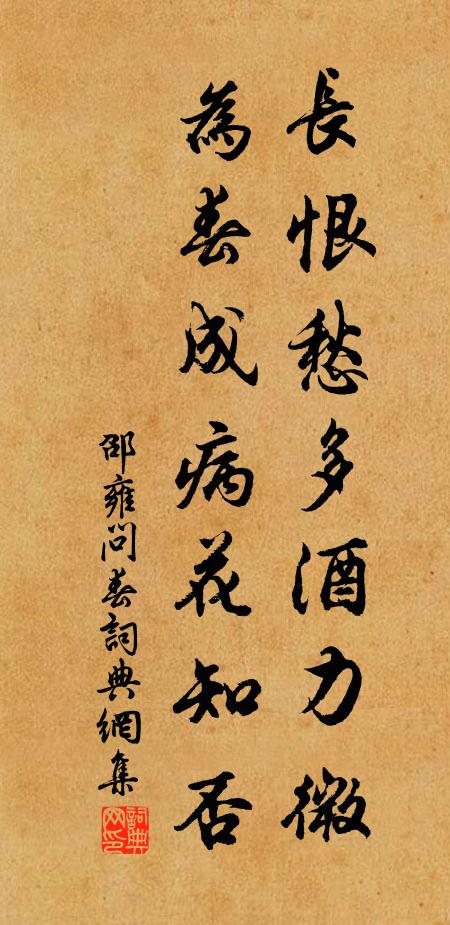 長恨愁多酒力微
為春成病花知否
邵雍問春詞典網集
詞典网印